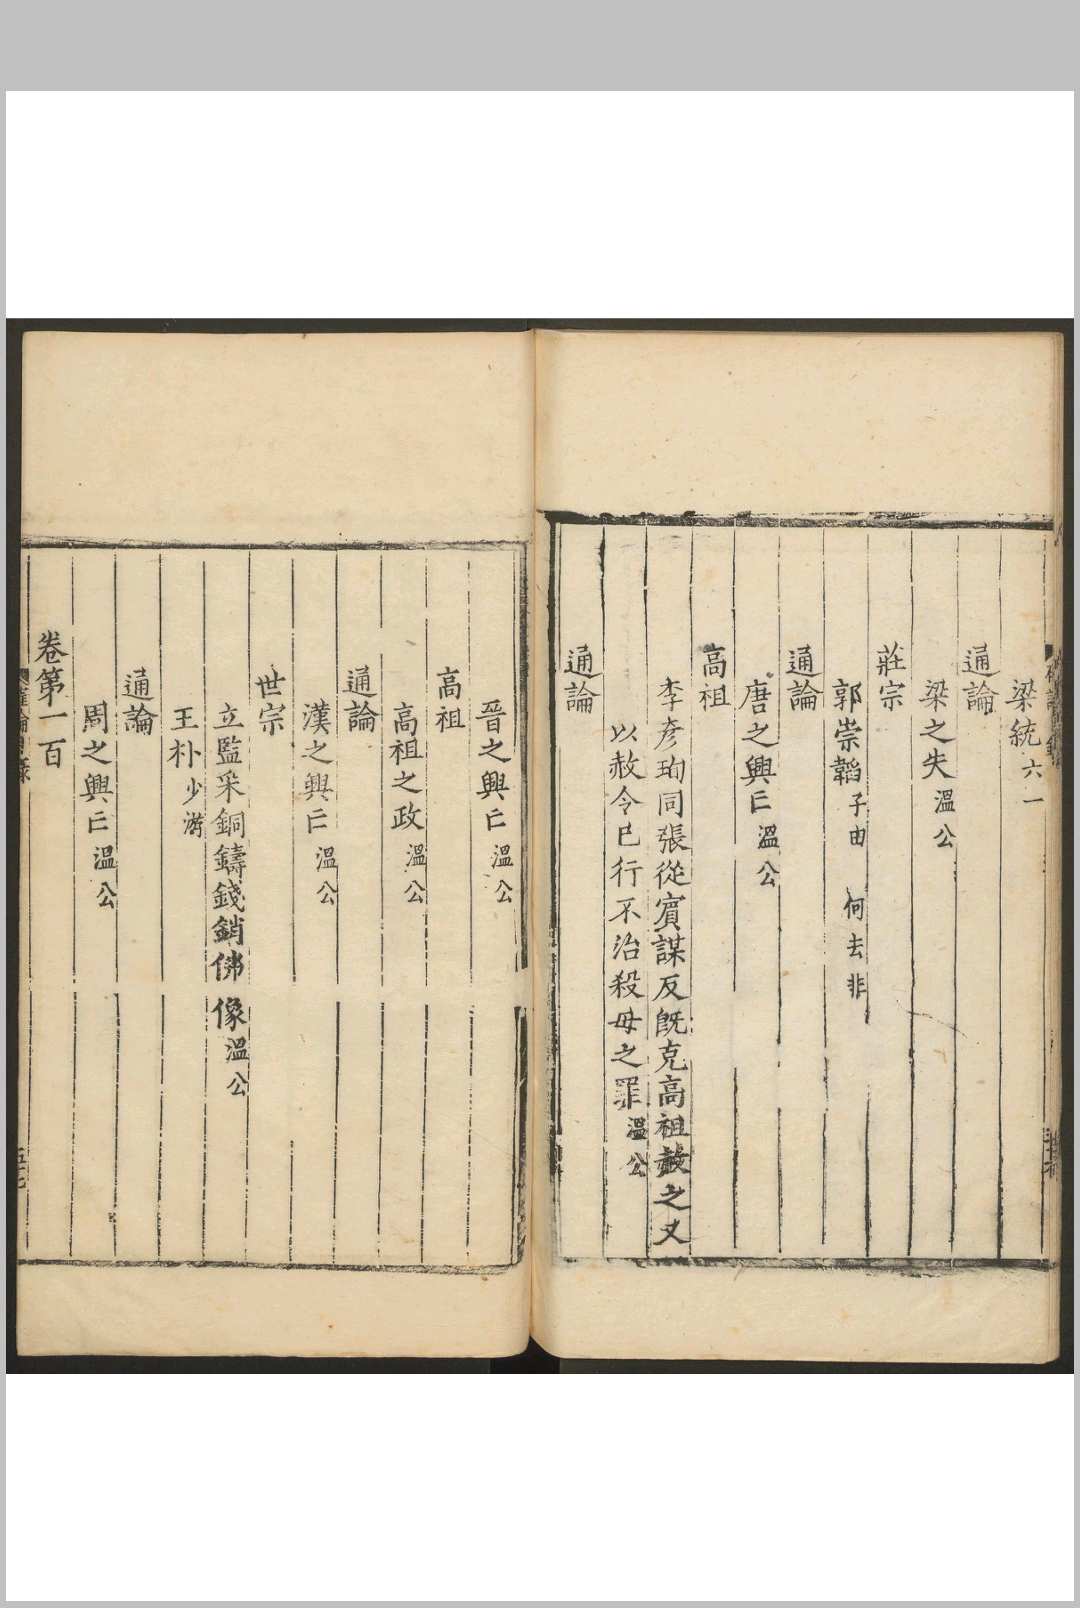 梁統六一
通論
梁之失溫公
莊宗
郭崇韜子由 何去非
通論
唐之興亡溫公
高祖
李彥珣同張從賓謀反旣克高祖赦之又
以赦令已行不治殺母之罪溫公
通論
晉之興亡溫公
高祖
高祖之政溫公
通論
漢之興亡溫公
世宗
立監采銅鑄錢銷佛像溫公
王朴少游
通論
周之興亡溫公
卷第一百